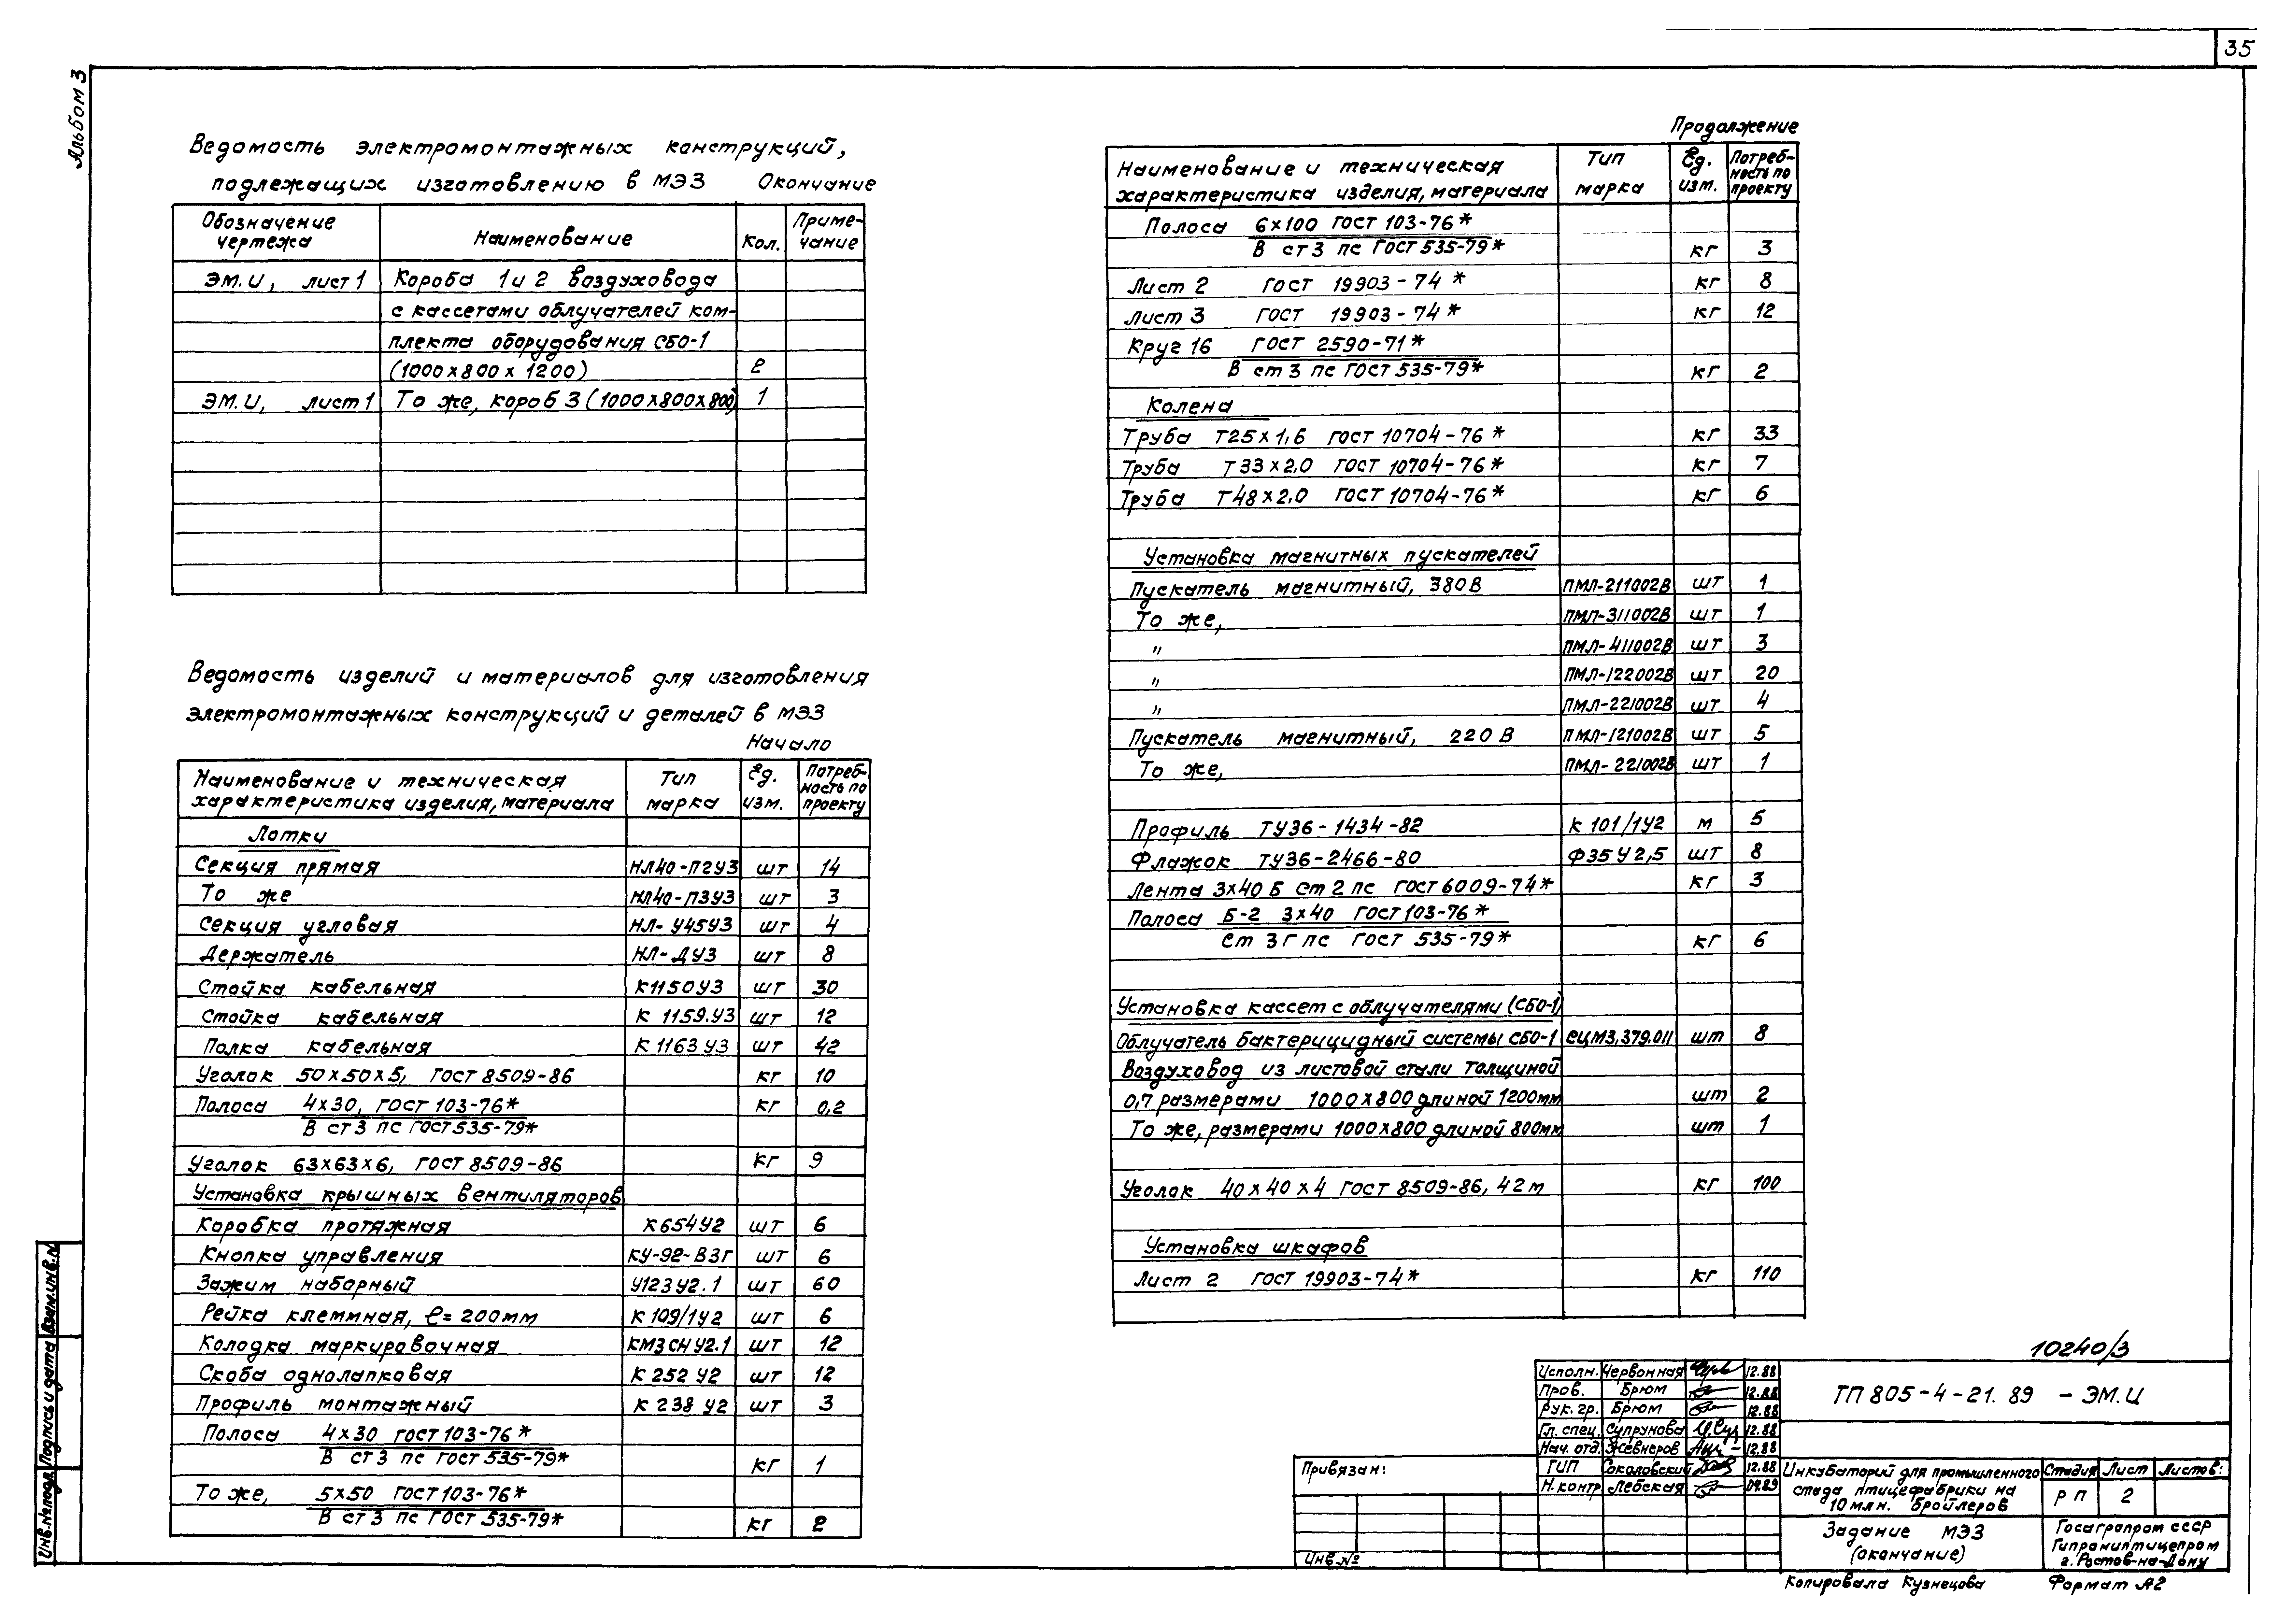 35
Альбом 3
Ведомость электромонтажных конструкций,
подлежащих изготовлению в МЭЗ Окончание
Обозначение чертежа Наименование Кол. Примечание
ЭМ.И, лист 1 Короба 1 и 2 воздуховода
с кассетами облучателей ком-
плекта оборудования СБО-1
(1000х800х1200) 2
ЭМ.И, лист 1 То же, короб 3 (1000х800х800) 1
Ведомость изделий и материалов для изготовления
электромонтажных конструкций и деталей в МЭЗ
Начало
Наименование и техническая Тип Ед. Потреб-
характеристика изделия, материала марка изм. ность по проекту
Лотки
Секция прямая НЛ40-П2У3 шт 14
То же НЛ40-П3У3 шт 3
Секция угловая НЛ-У45У3 шт 4
Держатель НЛ-ДУ3 шт 8
Стойка кабельная К1150У3 шт 30
Стойка кабельная К 1159.У3 шт 12
Полка кабельная К 1163 У3 шт 42
Уголок 50х50х5, ГОСТ 8509-86 кг 10
Полоса 4х30, ГОСТ 103-76* кг 0,2
В ст 3 пс ГОСТ 535-79*
Уголок 63х63х6, ГОСТ 8509-86 кг 9
Установка крышных вентиляторов
Коробка протяжная К654У2 шт 6
Кнопка управления КУ-92-В3Г шт 6
Зажим наборный У123У2.1 шт 60
Рейка клеммная, ℓ=200мм К 109/1У2 шт 6
Колодка маркировочная КМ3СНУ2.1 шт 12
Скоба однолапковая К 252 У2 шт 12
Профиль монтажный К 238 У2 шт 3
Полоса 4х30 ГОСТ 103-76*
В ст 3 пс ГОСТ 535-79* кг 1
То же, 5х50 ГОСТ 103-76*
В ст 3 пс ГОСТ 535-79* кг 2
Продолжение
Наименование и техническая Тип Ед. Потреб-
характеристика изделия, материала марка изм. ность по проекту
Полоса 6х100 ГОСТ 103-76*
В ст 3 пс ГОСТ 535-79* кг 3
Лист 2 ГОСТ 19903-74* кг 8
Лист 3 ГОСТ 19903-74* кг 12
Круг 16 ГОСТ 2590-71*
В ст 3 пс ГОСТ 535-79* кг 2
Колена
Труба Т25х1,6 ГОСТ 10704-76* кг 33
Труба Т33х2,0 ГОСТ 10704-76* кг 7
Труба Т48х2,0 ГОСТ 10704-76* кг 6
Установка магнитных пускателей
Пускатель магнитный, 380В ПМЛ-211002В шт 1
То же, ПМЛ-311002В шт 1
" ПМЛ-411002В шт 3
" ПМЛ-122002В шт 20
" ПМЛ-221002В шт 4
Пускатель магнитный, 220 В ПМЛ-121002В шт 5
То же, ПМЛ-221002В шт 1
Профиль ТУ36-1434-82 К 101/1У2 м 5
Флажок ТУ36-2466-80 Ф35У2,5 шт 8
Лента 3х40 Б Ст 2 пс ГОСТ 6009-74* кг 3
Полоса Б-2 3х40 ГОСТ 103-76*
Ст 3 Г пс ГОСТ 535-79* кг 6
Установка кассет с облучателями (СБО-1)
Облучатель бактерицидный системы СБО-1 ЕЦМ3.379.011 шт 8
Воздуховод из листовой стали толщиной
0,7 размерами 1000х800 длиной 1200мм шт 2
То же, размерами 1000х800 длиной 800мм шт 1
Уголок 40х40х4 ГОСТ 8509-86, 42м кг 100
Установка шкафов
Лист 2 ГОСТ 19903-74* кг 110
10240/3
Исполн. Червонная 12.88
Пров. Брюм 12.88
Рук. гр. Брюм 12.88
Гл. спец. Супрунова 12.88
Нач. отд. Жевнеров 12.88
ГИП Соколовский 12.88
Н. контр Лебская 04.89
ТП 805-4-21.89 - ЭМ.И
Привязан:
Инв.№
Инкубаторий для промышленного
стада птицефабрики на
10 млн. бройлеров
Стадия Лист Листов:
РП 2
Задание МЭЗ
(окончание)
Госагропром СССР
Гипрониптицепром
г. Ростов-на-Дону
Копировала Кузнецова Формат А2
Взам.инв.№
Подпись и дата
Инв.№подл.